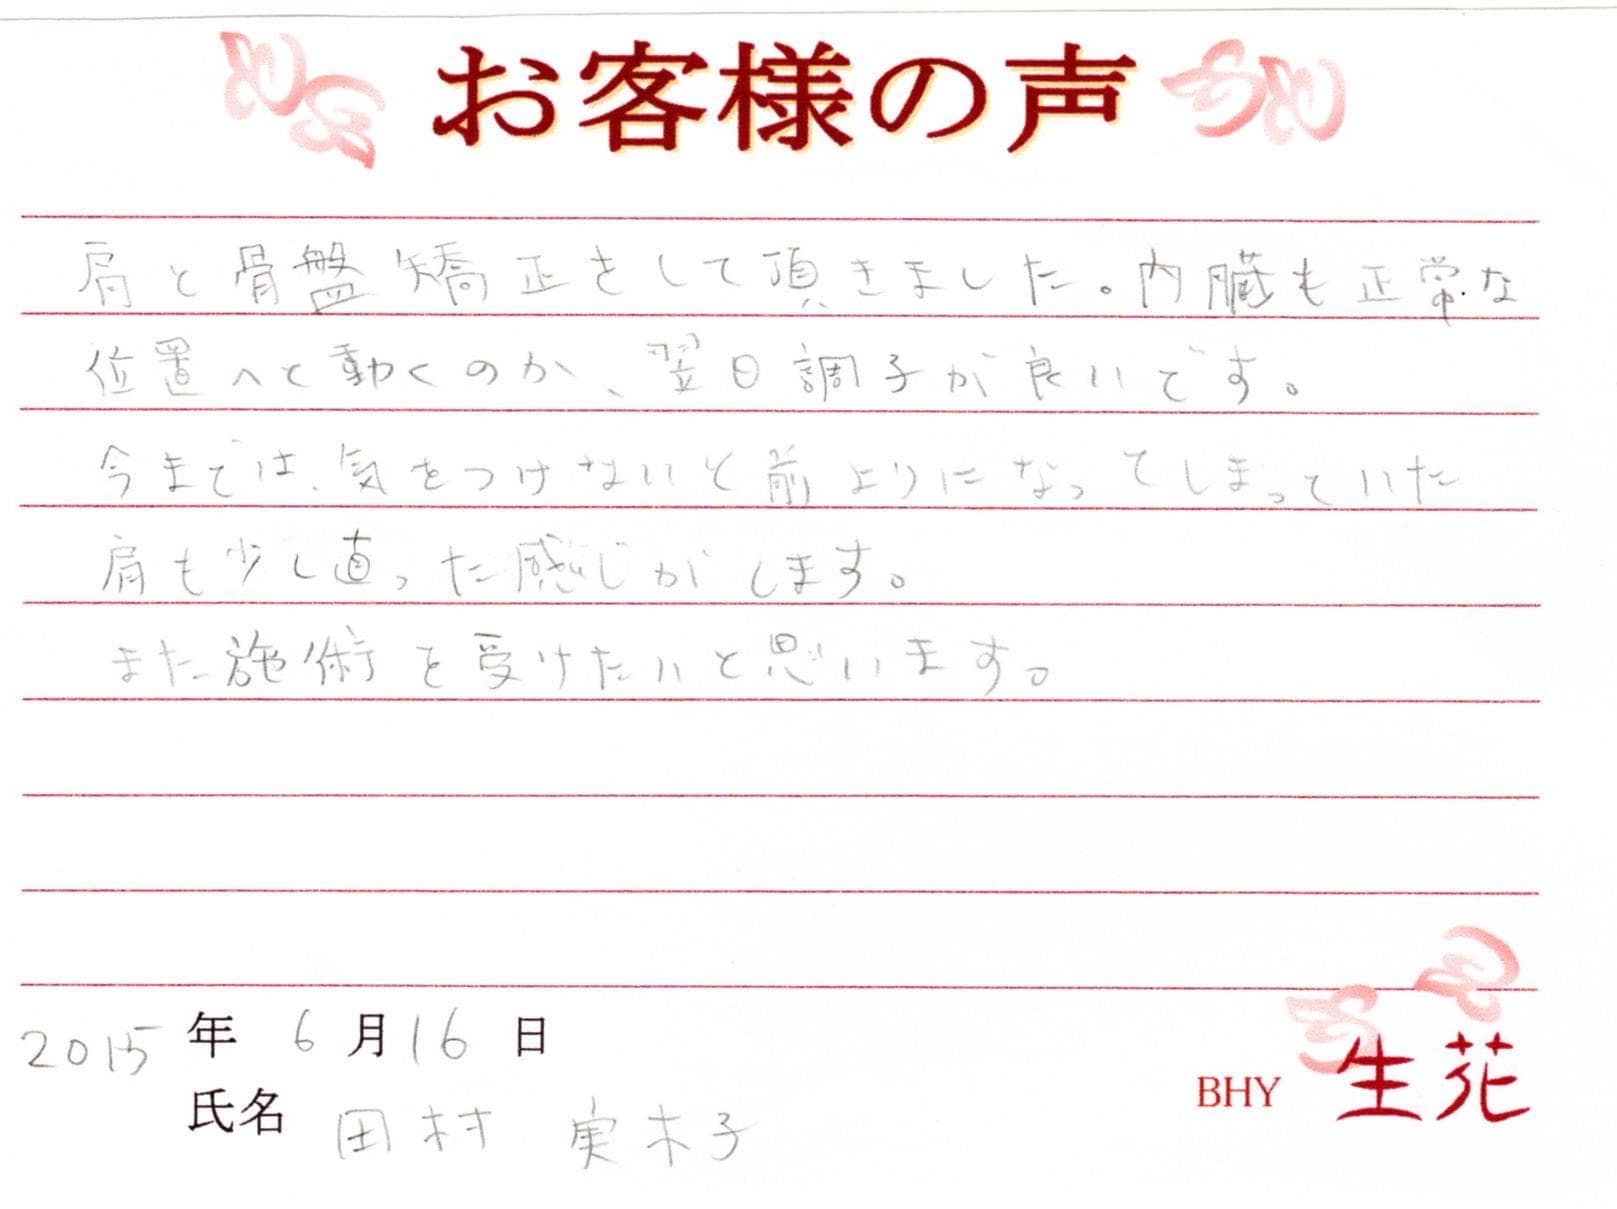 お客様の声
肩と骨盤矯正をして頂きました。内臓も正常な
位置へと動くのか、翌日調子が良いです。
今までは、気をつけないと前よりになってしまっていた
肩も少し直った感じがします。
また施術を受けたいと思います。
2015年 6月16日
氏名 田村 実木子
BHY 生花